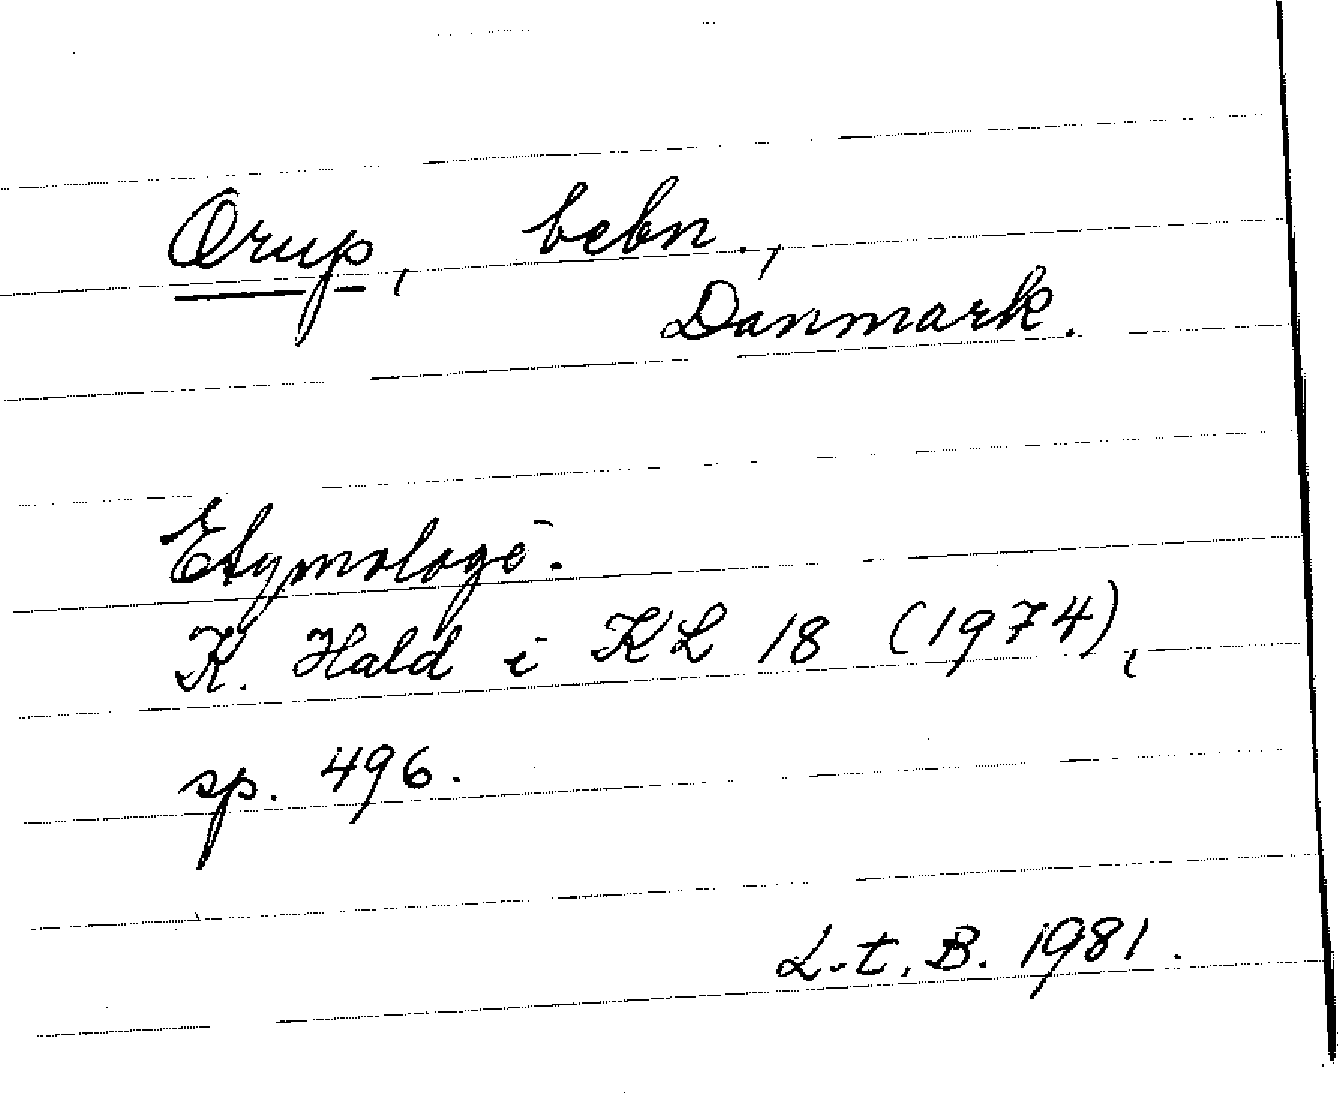 Orup, bebn.,
Danmark.
Etymologi.
K. Hald i KL 18 (1974),
sp. 496.
L.t.B. 1981.